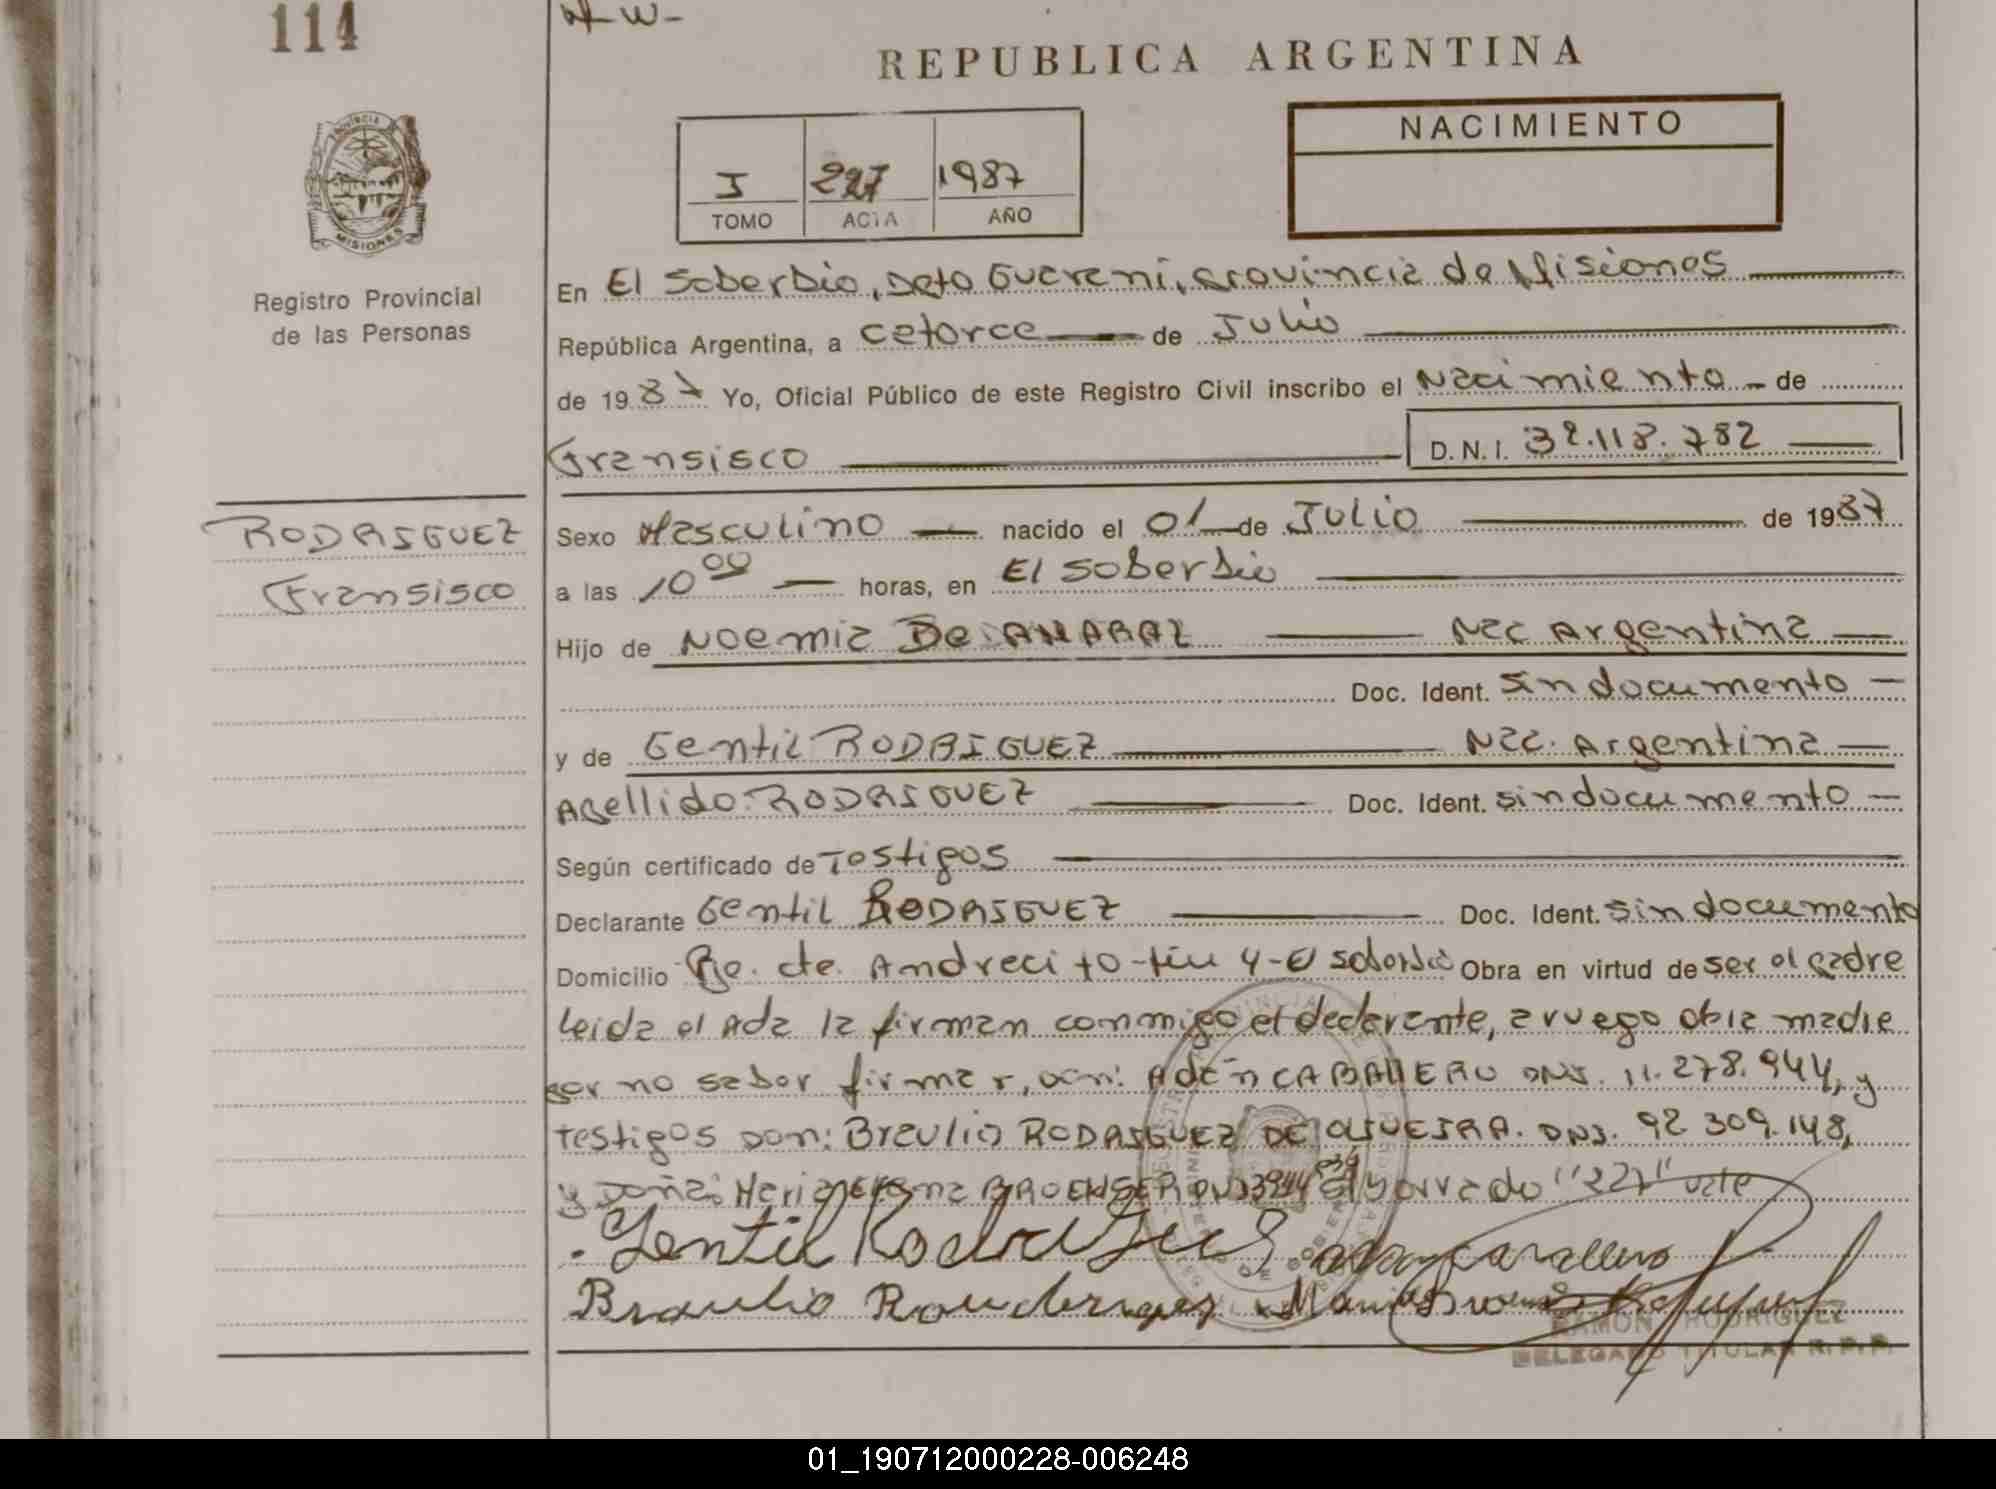 114
REPUBLICA ARGENTINA
NACIMIENTO
I 227 1987
TOMO ACTA AÑO
PROVINCIA DE
MISIONES
Registro Provincial
de las Personas
En El Soberbio, Dpto Guarani, provincia de Misiones
República Argentina, a catorce de Julio
de 1987 Yo, Oficial Público de este Registro Civil inscribo el Nacimiento de
Fransisco D.N.I. 32.118.782
RODRIGUEZ
Fransisco
Sexo Masculino nacido el 01 de Julio de 1987
a las 10 00 horas, en El Soberbio
Hijo de Noemia De AMARAL Nac Argentina
Doc. Ident. sin documento
y de Gentil RODRIGUEZ Nac. Argentina
Apellido: RODRIGUEZ Doc. Ident. sin documento
Según certificado de Testigos
Declarante Gentil RODRIGUEZ Doc. Ident. sin documento
Domicilio Pje. cte. Andrecito - 4 - El Soberbio Obra en virtud de ser el padre
leida el Acta la firman conmigo el declarante, a ruego de la madre
por no saber firmar, don: Adán CABALLERO DNI. 11.278.944, y
testigos Don: Braulio RODRIGUEZ DE OLIVEIRA. DNI. 92.309.148,
y Doña: Maria BROENSER DNI borrado "227" vale
Gentil Rodriguez Caballero
Braulio Rouderigez Maria
RAMON RODRIGUEZ
DELEGADO TITULAR R.P.P.
01_190712000228-006248